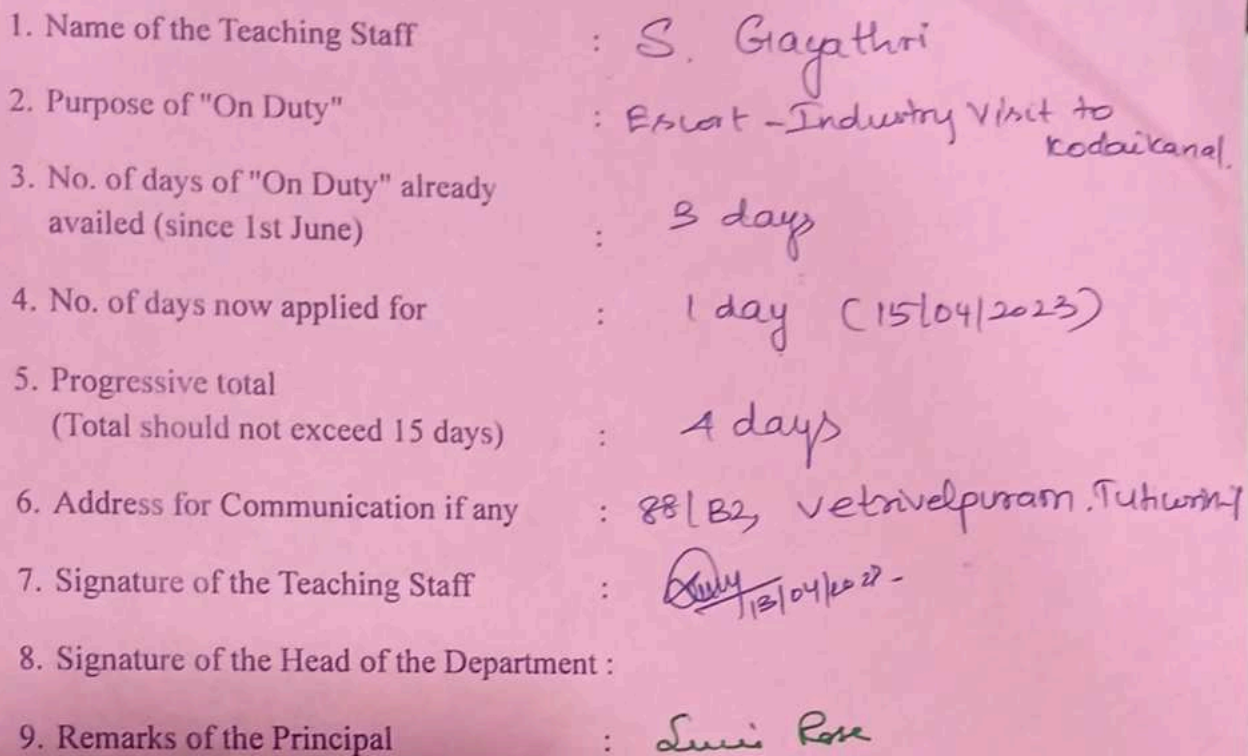 1. Name of the Teaching Staff : S. Gayathri
2. Purpose of "On Duty" : Escort - Industry Visit to
kodaikanal.
3. No. of days of "On Duty" already
availed (since 1st June) : 3 days
4. No. of days now applied for : 1 day (15/04/2023)
5. Progressive total
(Total should not exceed 15 days) : 4 days
6. Address for Communication if any : 88/B2, Vetrivelpuram.
7. Signature of the Teaching Staff : 13/04/2023
8. Signature of the Head of the Department :
9. Remarks of the Principal : Rose